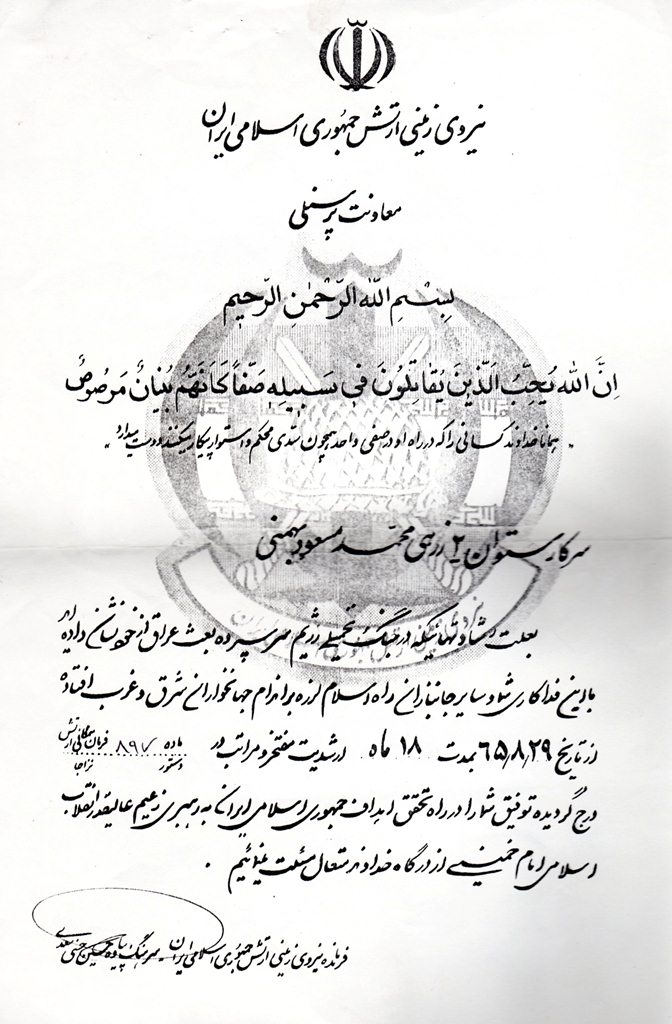 نیروی زمینی ارتش جمهوری اسلامی ایران
معاونت پرسنلی
بِسْمِ اللهِ الرَّحْمٰنِ الرَّحیمِ
اِنَّ الله یُحِبُّ الَّذینَ یُقاتِلُونَ فی سَبیلِهِ صَفّاً کَاَنَّهُم بُنیانٌ مَرصُوصٌ
"همانا خداوند کسانی را که در راه او در صفی واحد همچون سدی محکم و استوار پیکار میکنند دوست میدارد"
سرکار ستوان ۲ زرهی محمد مسعود بهمنی
بعلت رشادتهائیکه در جنگ تحمیلی رژیم سرسپرده بعث عراق از خود نشان داده اید
با این فداکاری شما و سایر جانبازان راه اسلام لرزه بر اندام جهانخواران شرق و غرب افتاده
از تاریخ ۶۵/۸/۲۹ بمدت ۱۸ ماه ارشدیت مفتخر و مراتب در ماده دستور ۸۹۷ فرمان همگانی ارتش نزاجا
درج گردیده توفیق شما را در راه تحقق اهداف جمهوری اسلامی ایران به رهبری زعیم عالیقدر انقلاب
اسلامی امام خمینی از درگاه خداوند متعال مسئلت مینمائیم .
فرمانده نیروی زمینی ارتش جمهوری اسلامی ایران - سرهنگ پیاده حسین حسنی سعدی